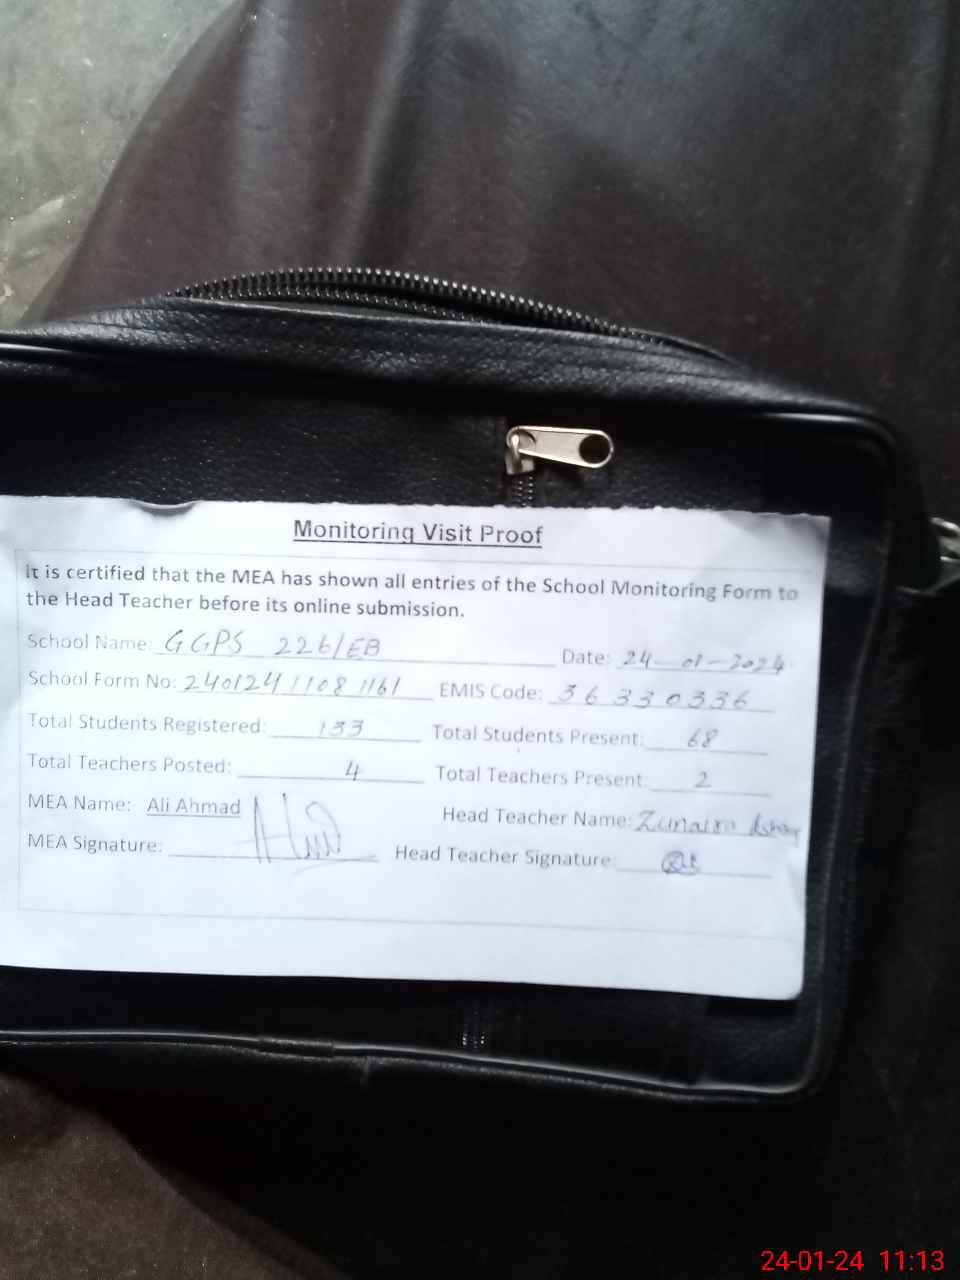 Monitoring Visit Proof
It is certified that the MEA has shown all entries of the School Monitoring Form to
the Head Teacher before its online submission.
School Name: GGPS 226/EB Date: 24-01-2024
School Form No: 2401241108 1161 EMIS Code: 36330336
Total Students Registered: 133 Total Students Present: 68
Total Teachers Posted: 4 Total Teachers Present: 2
MEA Name: Ali Ahmad Head Teacher Name: Zunaira
MEA Signature: Head Teacher Signature:
24-01-24 11:13